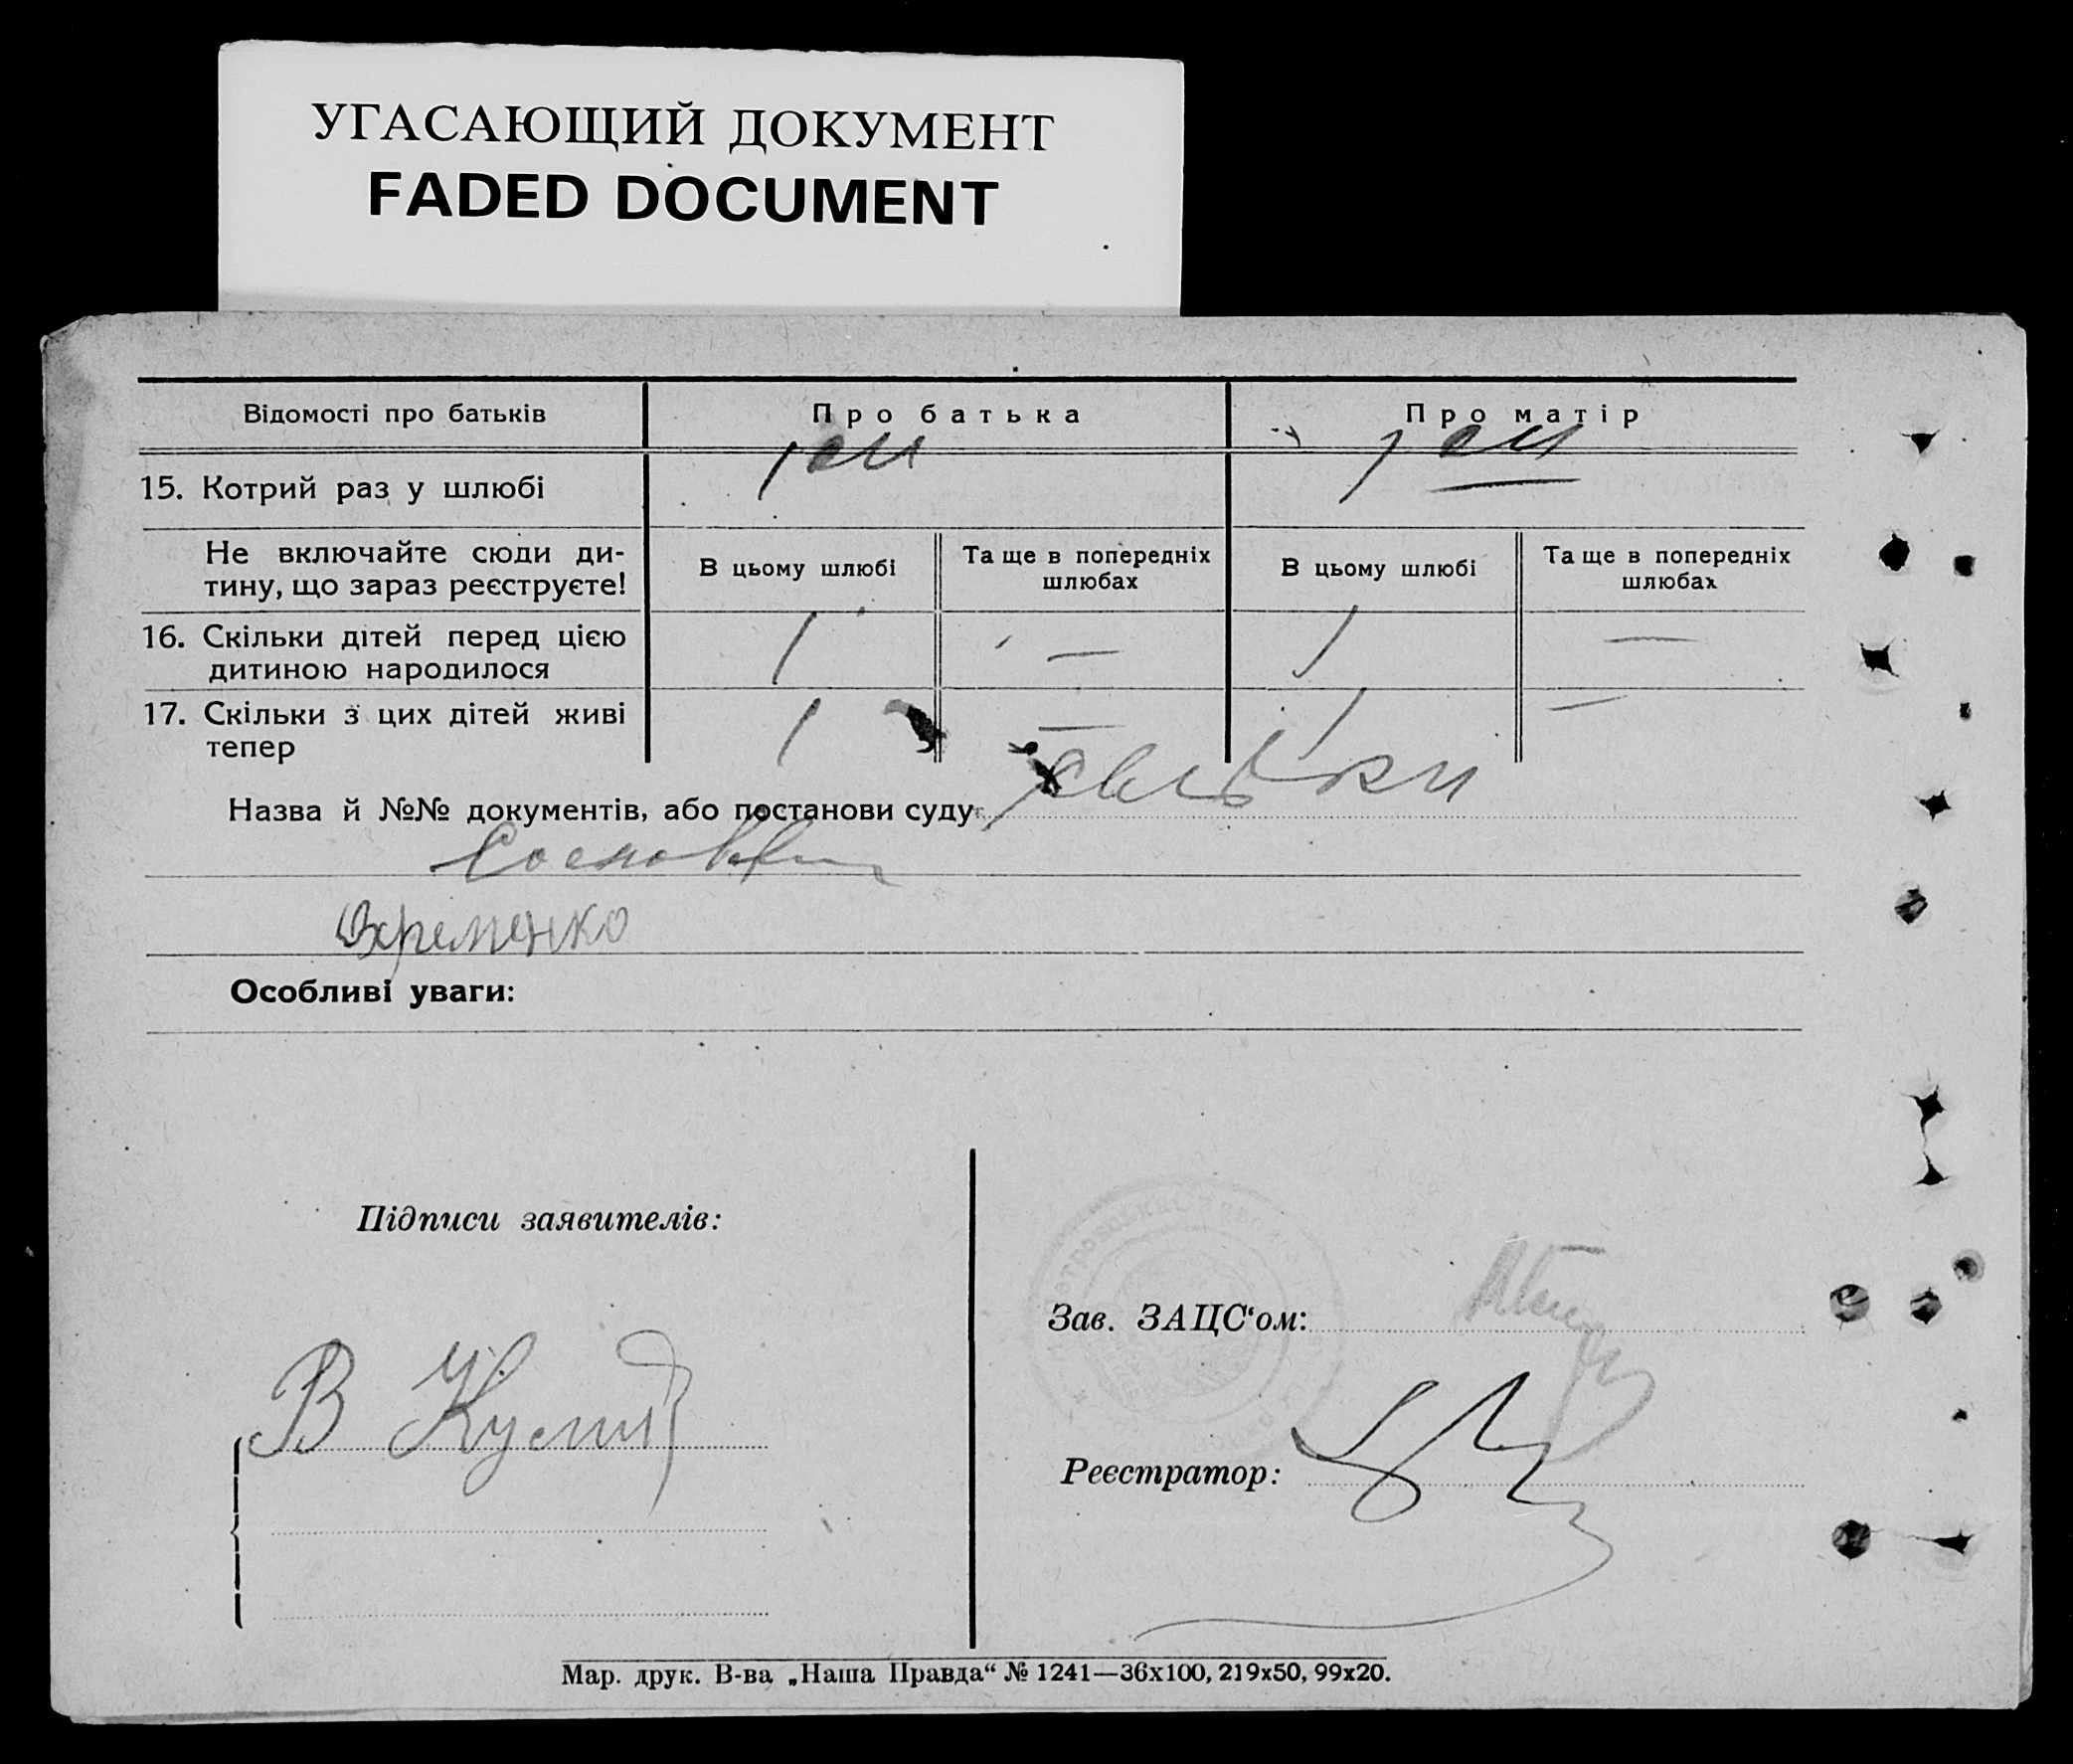 УГАСАЮЩИЙ ДОКУМЕНТ
FADED DOCUMENT
Відомості про батьків
Про батька
Про матір
15. Котрий раз у шлюбі
Не включайте сюди ди-
тину, що зараз реєструєте!
В цьому шлюбі
Та ще в попередніх
шлюбах
В цьому шлюбі
Та ще в попередніх
шлюбах
16. Скільки дітей перед цією
дитиною народилося
1 — 1 —
17. Скільки з цих дітей живі
тепер
1 — 1 —
Назва й №№ документів, або постанови суду
Особливі уваги:
Підписи заявителів:
Зав. ЗАЦС‘ом:
В
Реєстратор:
Мар. друк. В-ва „Наша Правда“ № 1241—36х100, 219х50, 99х20.